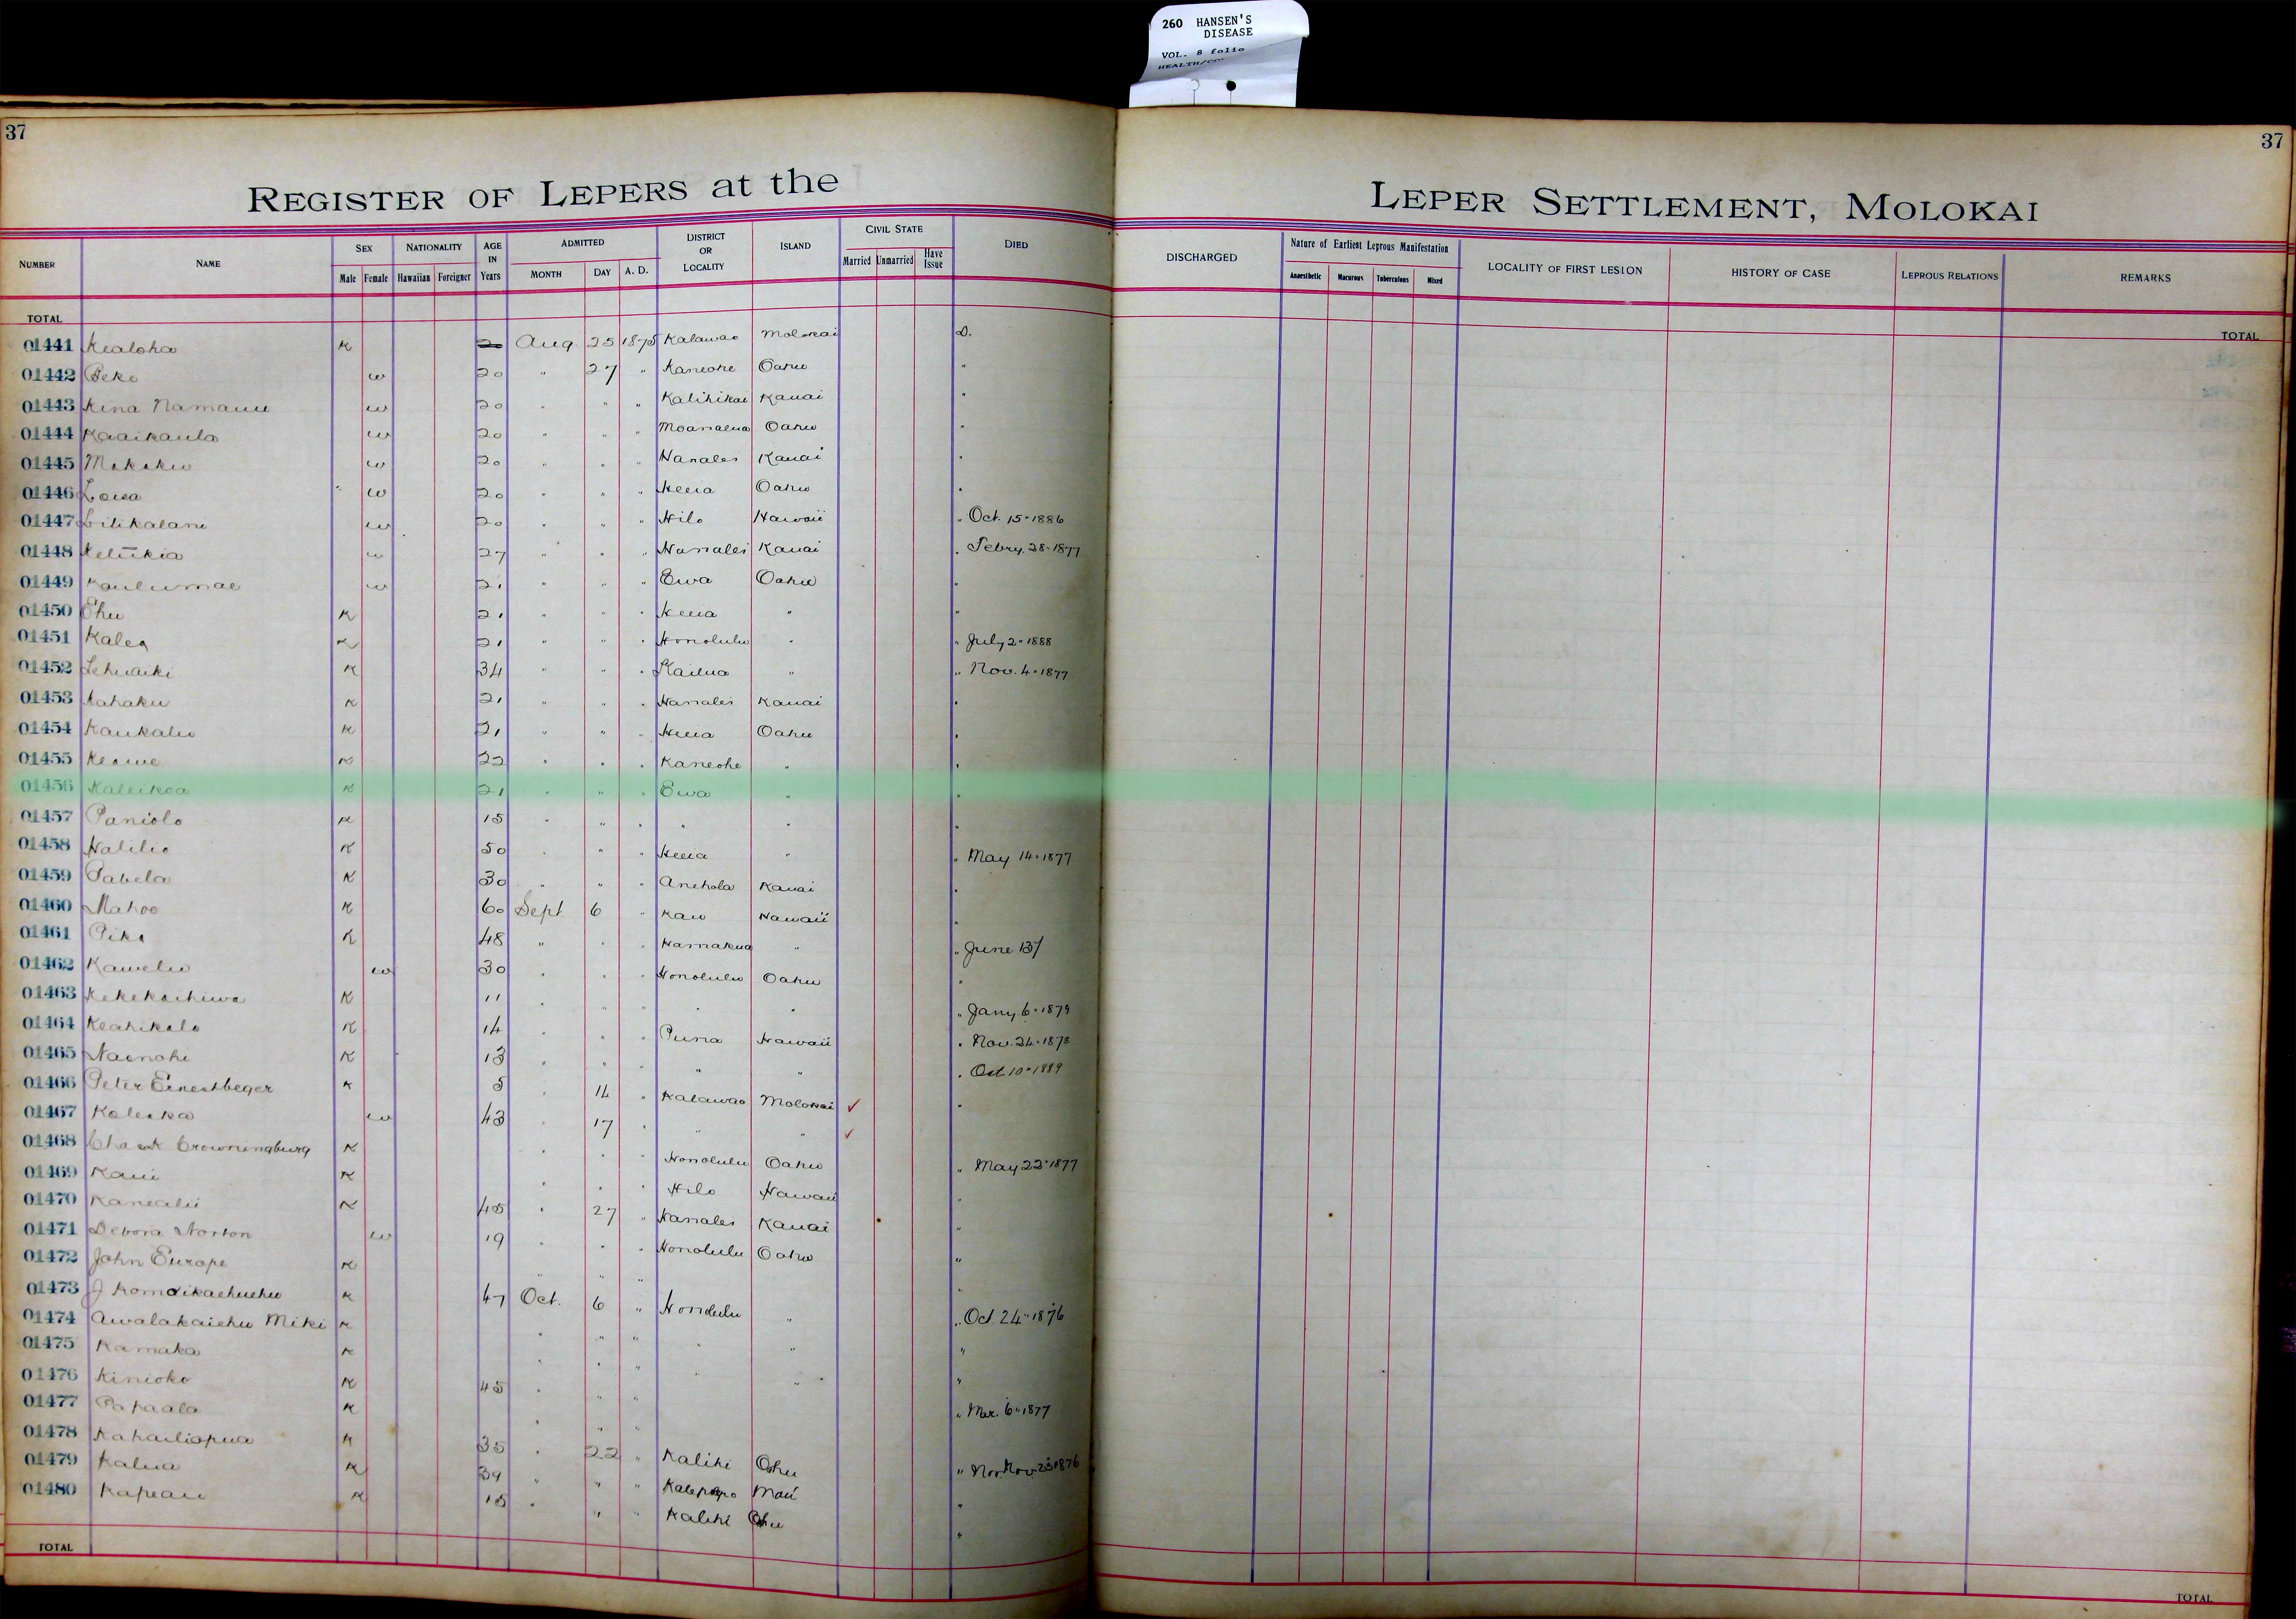 260 HANSEN'S
DISEASE
VOL. 8 folio
37 37
REGISTER OF LEPERS at the LEPER SETTLEMENT, MOLOKAI
NUMBER NAME SEX NATIONALITY AGE IN Years ADMITTED DISTRICT OR LOCALITY ISLAND CIVIL STATE DIED DISCHARGED Nature of Earliest Leprous Manifestation LOCALITY OF FIRST LESION HISTORY OF CASE LEPROUS RELATIONS REMARKS
Male Female Hawaiian Foreigner MONTH DAY A. D. Married Unmarried Have Issue Anaesthetic Macurous Tuberculous Mixed
TOTAL TOTAL
01441 Kealoha K 20 Aug. 25 1875 Kalawao Molokai D.
01442 Peke w 20 " 27 " Kaneohe Oahu "
01443 Kina Namauu w 20 " " " Kalihikai Kauai "
01444 Kaaikaula w 20 " " " Moanalua Oahu "
01445 Makaku w 20 " " " Hanalei Kauai "
01446 Loisa w 20 " " " Heeia Oahu "
01447 Lilikalani w 20 " " " Hilo Hawaii " Oct. 15 - 1886
01448 Keliikia w 27 " " " Hanalei Kauai " Febry. 28 - 1877
01449 Kaulumae w 21 " " " Ewa Oahu "
01450 Ehu K 21 " " " Heeia " "
01451 Kalea K 21 " " " Honolulu " " July 2 - 1888
01452 Lehuaiki K 34 " " " Kailua " " Nov. 4 - 1877
01453 Kahaku K 21 " " " Hanalei Kauai "
01454 Kaukaliu K 21 " " " Heeia Oahu "
01455 Keawe K 22 " " " Kaneohe " "
01456 Kaleikoa K 21 " " " Ewa " "
01457 Paniolo K 15 " " " " " "
01458 Halilio K 50 " " " Heeia " " May 14 - 1877
01459 Pabela K 30 " " " Anehola Kauai "
01460 Mahoe K 60 Sept 6 " Kau Hawaii "
01461 Pika K 48 " " " Hamakua " " June 13/
01462 Kawelu w 30 " " " Honolulu Oahu "
01463 Kekekaihiwa K 11 " " " " " " Jany 6 - 1879
01464 Keahikolo K 14 " " " Puna Hawaii " Nov. 24 - 1878
01465 Nainohi K 13 " " " " " " Oct 10 - 1889
01466 Peter Ernestbeger K 5 " 14 " Kalawao Molokai ✓ "
01467 Kaleika w 43 " 17 " " " ✓
01468 Crowningburg K " " " Honolulu Oahu " May 22 - 1877
01469 Kaui K " " " Hilo Hawaii "
01470 Kanealii K 45 " 27 " Hanalei Kauai "
01471 Debora Norton w 19 " " " Honolulu Oahu "
01472 John Europe K " " " "
01473 J K 47 Oct. 6 " Honolulu " " Oct. 24 - 1876
01474 Awalakaiehu Miki K " " " " " "
01475 Kamaka K " " " " " "
01476 Kinioko K 45 " " " " Mar. 6 - 1877
01477 Papaala K " " "
01478 Kahailiopua K 35 " 22 " Kalihi Oahu " Nov. 23 1876
01479 Kalua K 34 " " " Kalepolepo Maui "
01480 Kapeau K 15 " " " Kalihi Oahu "
TOTAL TOTAL